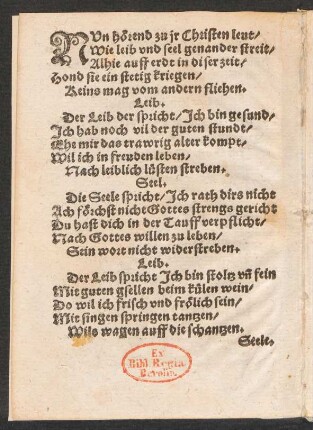 NVn hörend zu jr Christen leut/
Wie leib vnd seel genander streit/
Alhie auff erdt in diser zeit/
Hond sie ein stetig kriegen/
Keins mag vom andern fliehen.
Leib.
Der Leib der spricht/Ich bin gesund/
Ich hab noch vil der guten stundt/
Ehe mir das trawrig alter kompt/
Wil ich in freuden leben/
Nach leiblich lüsten streben.
Seel.
Die Seele spricht/Ich rath dirs nicht
Ach förchst nicht Gottes strengs gericht
Du hast dich in der Tauff verpflicht/
Nach Gottes willen zu leben/
Sein wort nicht widerstreben.
Leib.
Der Leib spricht Ich bin stoltz vñ fein
Mit guten gsellen beim külen wein/
Do wil ich frisch vnd frölich sein/
Mit singen springen tantzen/
Wils wagen auff die schantzen.
Seele.
Ex
Bibl. Regia
Berolin.